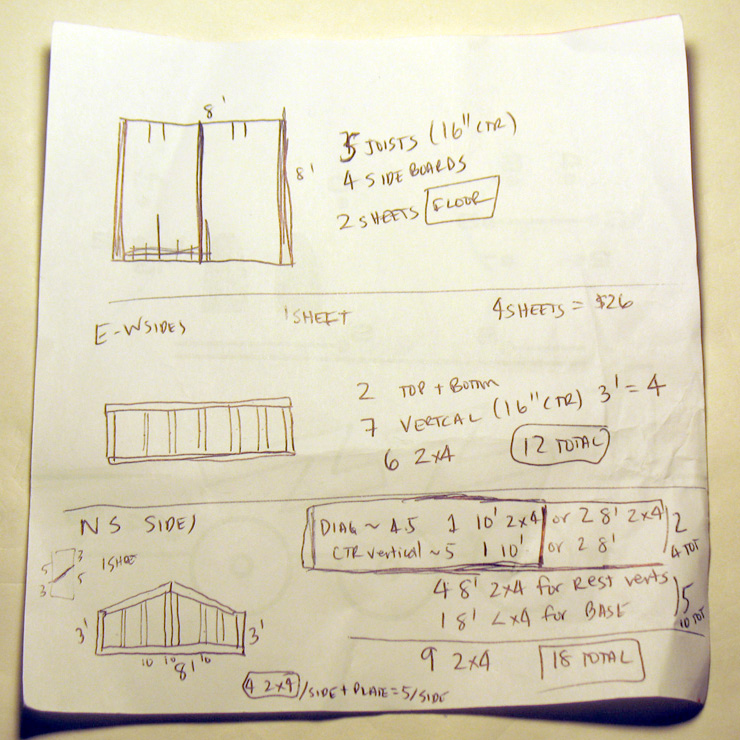 8'
8'
5 JOISTS (16" CTR)
4 SIDE BOARDS
2 SHEETS FLOOR
E-W SIDES
1 SHEET
4 SHEETS = $26
2 TOP + BOTTOM
7 VERTCAL (16" CTR) 3' = 4
6 2x4 12 TOTAL
NS SIDES
1 SHEET
5 3
3 5
3' 3'
10 10 10
8'
DIAG ~ 4.5 1 10' 2x4 or 2 8' 2x4
CTR vertical ~ 5 1 10' or 2 8'
2
4 TOT
4 8' 2x4 for REST verts
1 8' 2x4 for BASE
5
10 TOT
9 2x4 18 TOTAL
4 2x4 /SIDE + PLATE = 5/SIDE